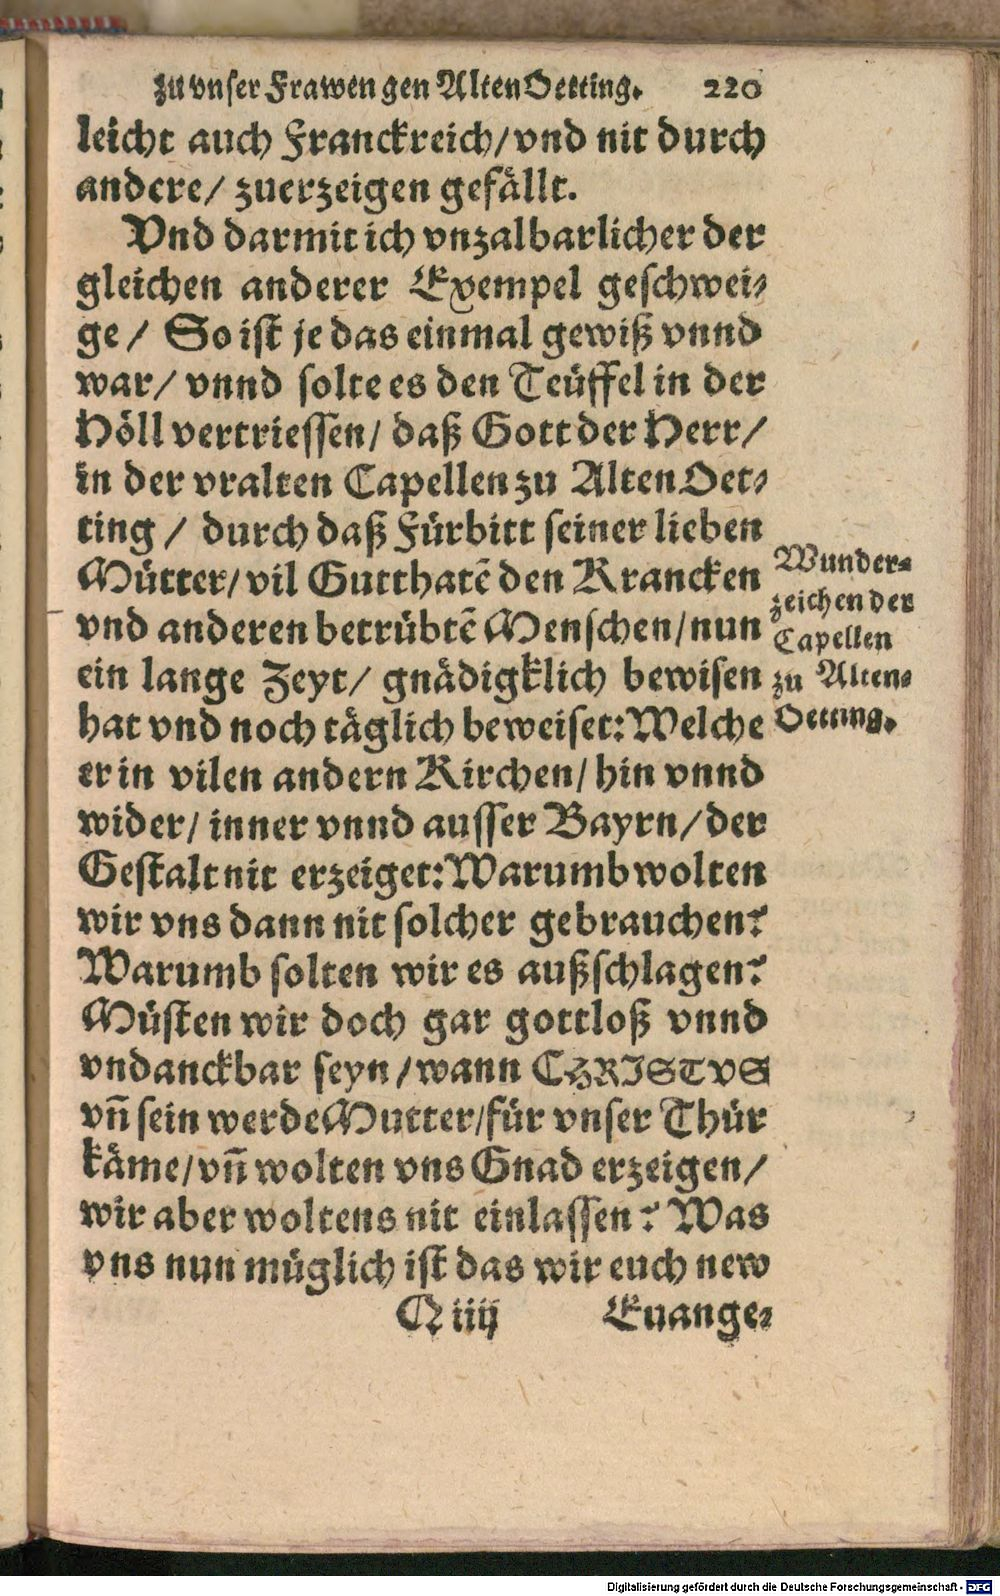 zu vnser Frawen gen Alten Oetting. 220
leicht auch Franckreich/ vnd nit durch
andere/ zuerzeigen gefällt.
Vnd darmit ich vnzalbarlicher der
gleichen anderer Exempel geschwei-
ge/ So ist je das einmal gewiß vnnd
war/ vnnd solte es den Teüffel in der
Höll vertriessen/ daß Gott der Herr/
in der vralten Capellen zu Alten Oet-
ting/ durch daß Fürbitt seiner lieben
Mütter/ vil Gutthatẽ den Krancken
vnd anderen betrübtẽ Menschen/ nun
ein lange Zeyt/ gnädigklich bewisen
hat vnd noch täglich beweiset: Welche
er in vilen andern Kirchen/ hin vnnd
wider/ inner vnnd ausser Bayrn/ der
Gestalt nit erzeiget: Warumb wolten
wir vns dann nit solcher gebrauchen?
Warumb solten wir es außschlagen?
Müsten wir doch gar gottloß vnnd
vndanckbar seyn/ wann CHRISTVS
vñ sein werde Mutter/ für vnser Thür
käme/ vñ wolten vns Gnad erzeigen/
wir aber woltens nit einlassen? Was
vns nun müglich ist das wir euch new
Q iiij Euange-
Wunder-
zeichen der
Capellen
zu Alten-
Oetting.
Digitalisierung gefördert durch die Deutsche Forschungsgemeinschaft - DFG